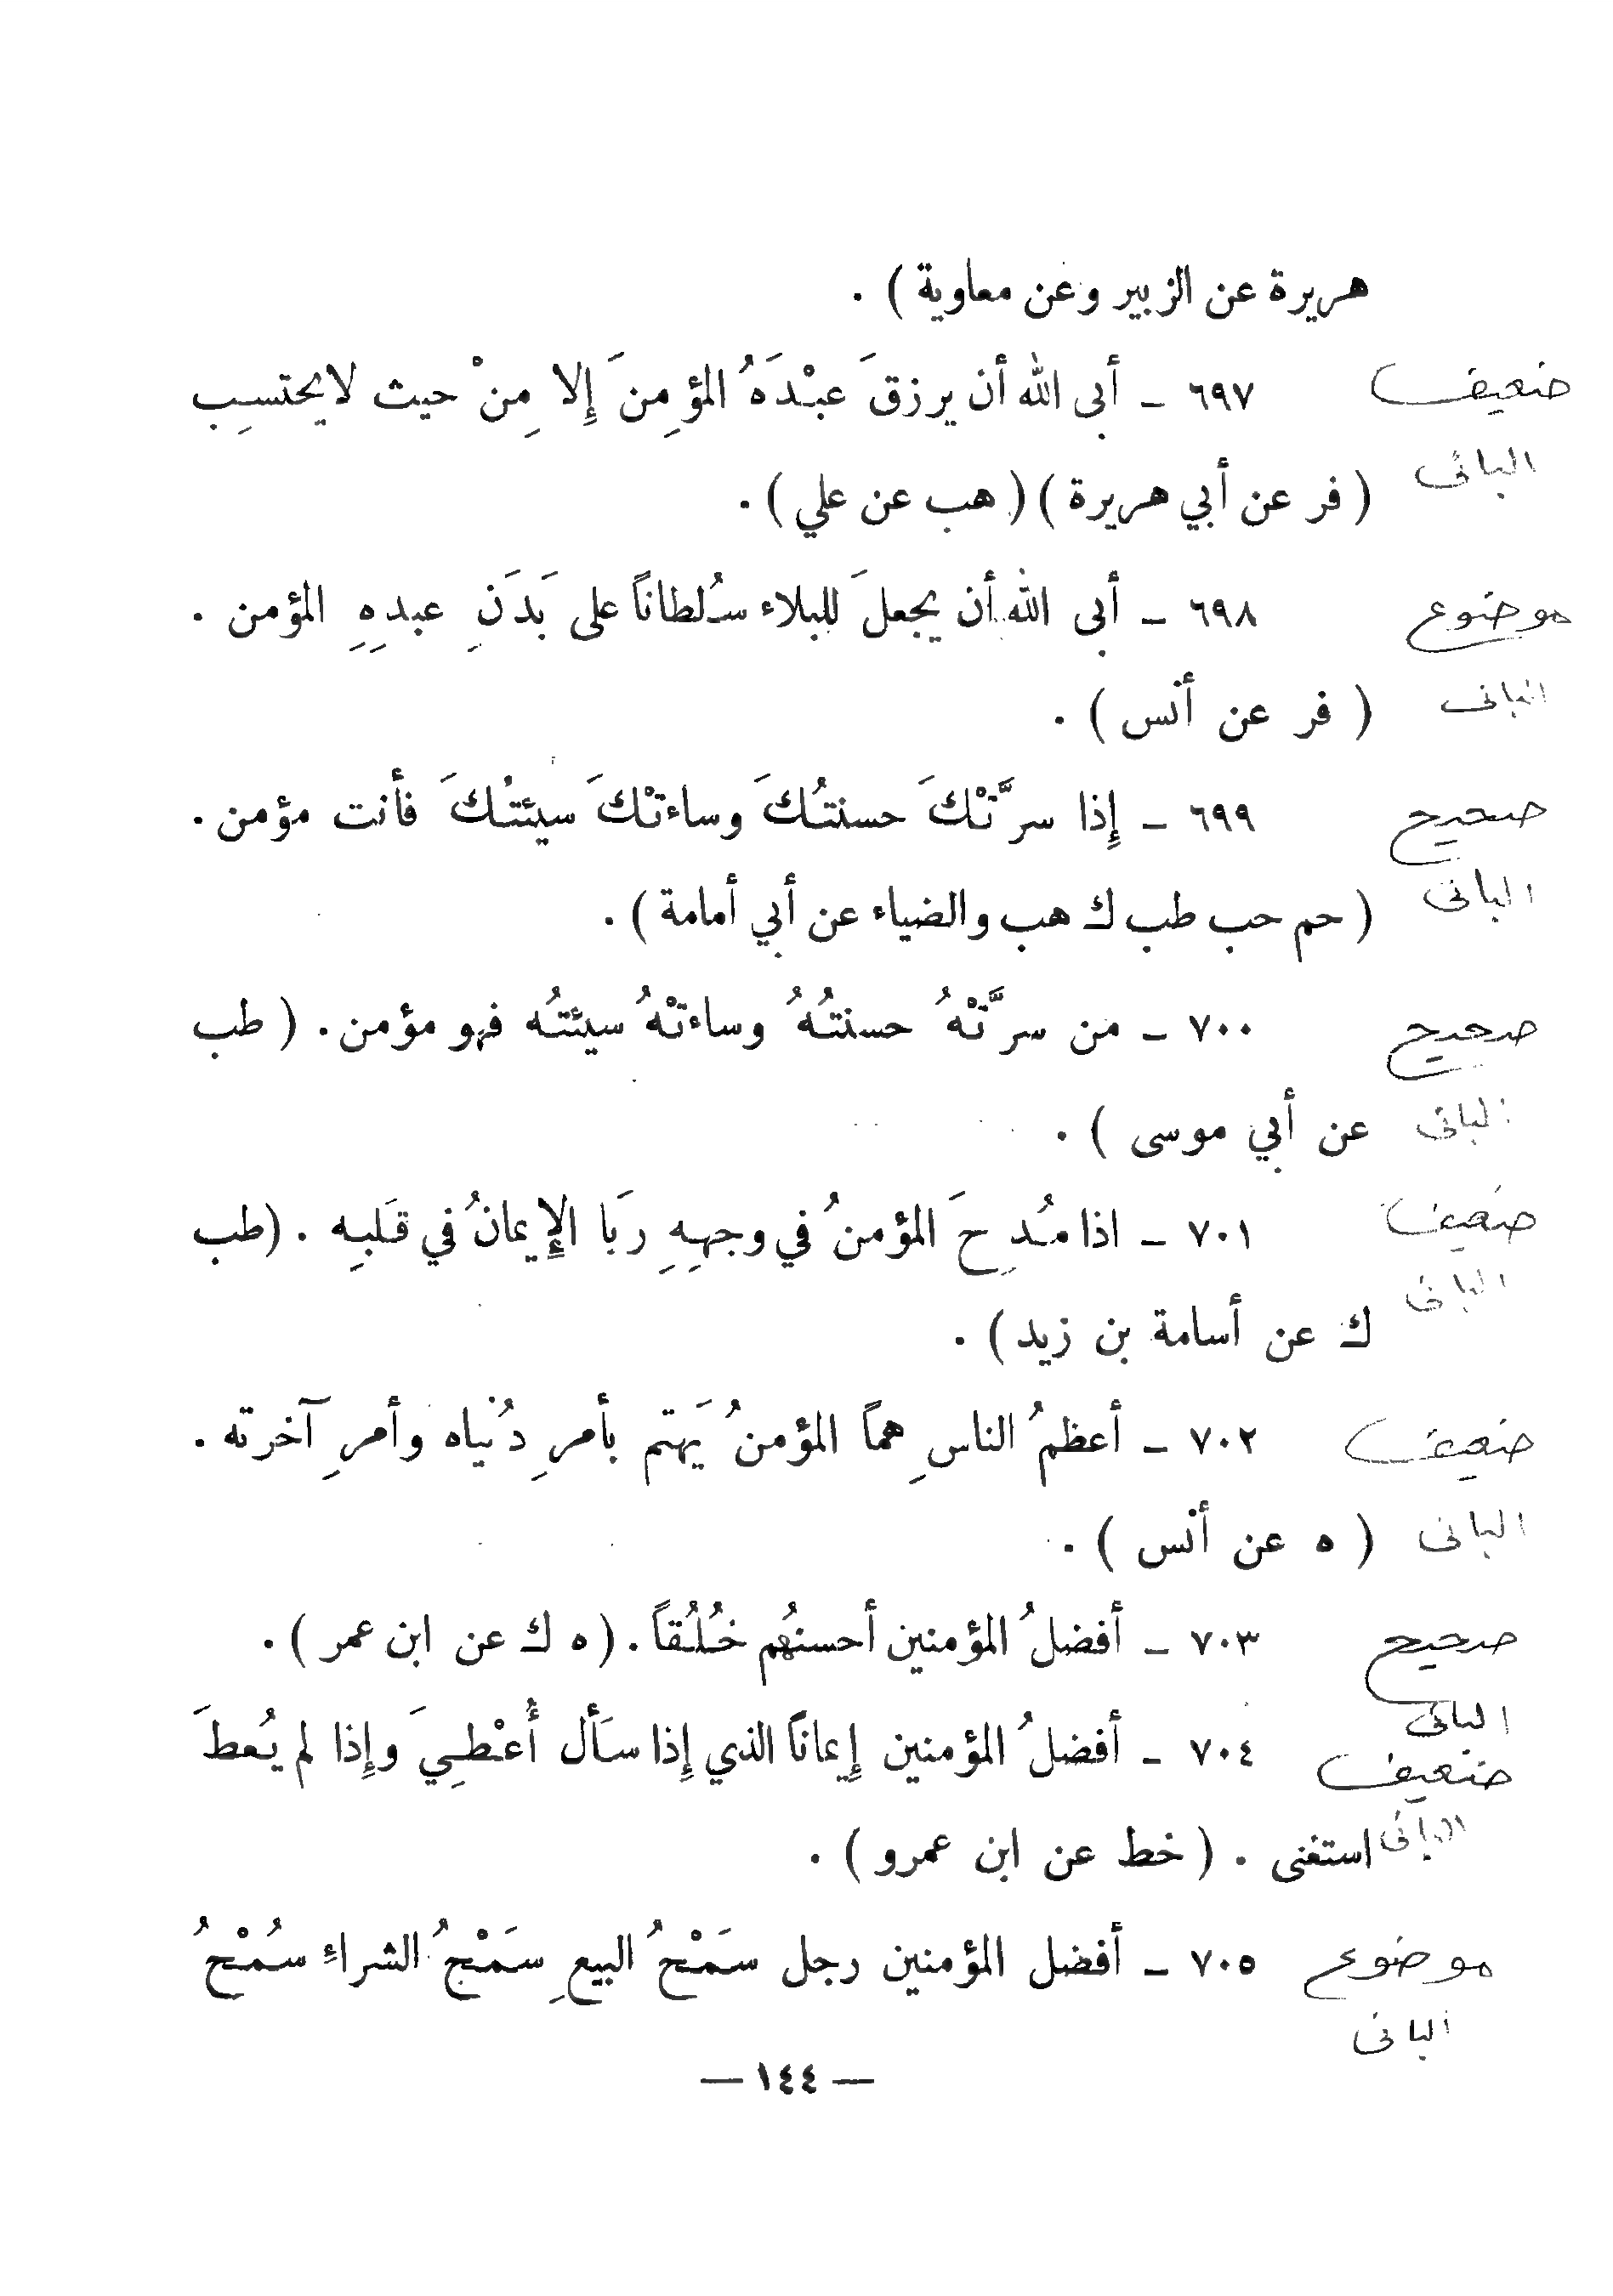 هريرة عن الزبير وعن معاوية ) .
ضعيف ٦٩٧ – أبى الله أن يرزقَ عبْدَهُ المؤمِنَ إِلا مِنْ حيث لايحتسِب
البانى ( فر عن أبي هريرة ) ( هب عن علي ) .
موضوع ٦٩٨ – أبى الله أن يجعلَ للبلاء سُلطاناً على بَدَنِ عبدِهِ المؤمن .
البانى ( فر عن أنس ) .
صحيح ٦٩٩ – إِذا سرَّتْكَ حسنتُكَ وساءتْكَ سيئتُكَ فأنت مؤمن .
البانى ( حم حب طب ك هب والضياء عن أبي أمامة ) .
صحيح ٧٠٠ – من سرَّتْهُ حسنتُهُ وساءتْهُ سيئتُه فهو مؤمن . ( طب
البانى عن أبي موسى ) .
ضعيف ٧٠١ – اذا مُدِحَ المؤمنُ في وجهِهِ رَبا الإِيمانُ في قَلبِه . (طب
البانى ك عن أسامة بن زيد ) .
ضعيف ٧٠٢ – أعظمُ الناسِ هماً المؤمنُ يَهتم بأمرِ دُنياه وأمرِ آخرته .
البانى ( ه عن أنس ) .
صحيح ٧٠٣ – أفضلُ المؤمنين أحسنُهم خُلُقاً . ( ه ك عن ابن عمر ) .
البانى
ضعيف ٧٠٤ – أفضلُ المؤمنين إِيماناً الذي إِذا سَأل أُعْطِيَ وإِذا لم يُعطَ
البانى استغنى . ( خط عن ابن عمرو ) .
موضوع ٧٠٥ – أفضل المؤمنين رجل سَمْحُ البيعِ سَمْحُ الشراءِ سُمْحُ
البانى
— ١٤٤ —